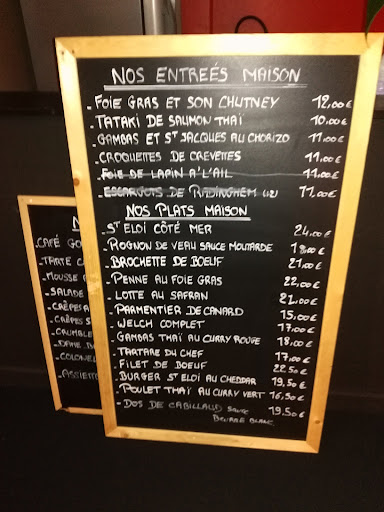 NOS ENTREÉS MAISON
- FOIE GRAS ET SON CHUTNEY 12,00€
- TATAKI DE SAUMON THAÏ 10,00€
- GAMBAS ET ST JACQUES AU CHORIZO 11,00€
- CROQUETTES DE CREVETTES 11,00€
- FOIE DE LAPIN A'L'AIL 11,00€
- ESCARGOTS DE RADINGHEM (12) 11,00€
NOS PLATS MAISON
- ST ELOI CÔTÉ MER 24,00€
- ROGNON DE VEAU SAUCE MOUTARDE 19,00€
- BROCHETTE DE BOEUF 21,00€
- PENNE AU FOIE GRAS 22,00€
- LOTTE AU SAFRAN 21,00€
- PARMENTIER DE CANARD 15,00€
- WELCH COMPLET 17,00€
- GAMBAS THAÏ AU CURRY ROUGE 18,00€
- TARTARE DU CHEF 17,00€
- FILET DE BOEUF 22,50€
- BURGER ST ELOI AU CHEDDAR 19,50€
- POULET THAÏ AU CURRY VERT 16,50€
- DOS DE CABILLAUD SAUCE 19,50€
BEURRE BLANC
- CAFÉ
- TARTE
- MOUSSE
- SALADE
- CRÊPES
- CRÊPES
- CRUMBLE
- DAME
- COLONEL
- ASSIETTE